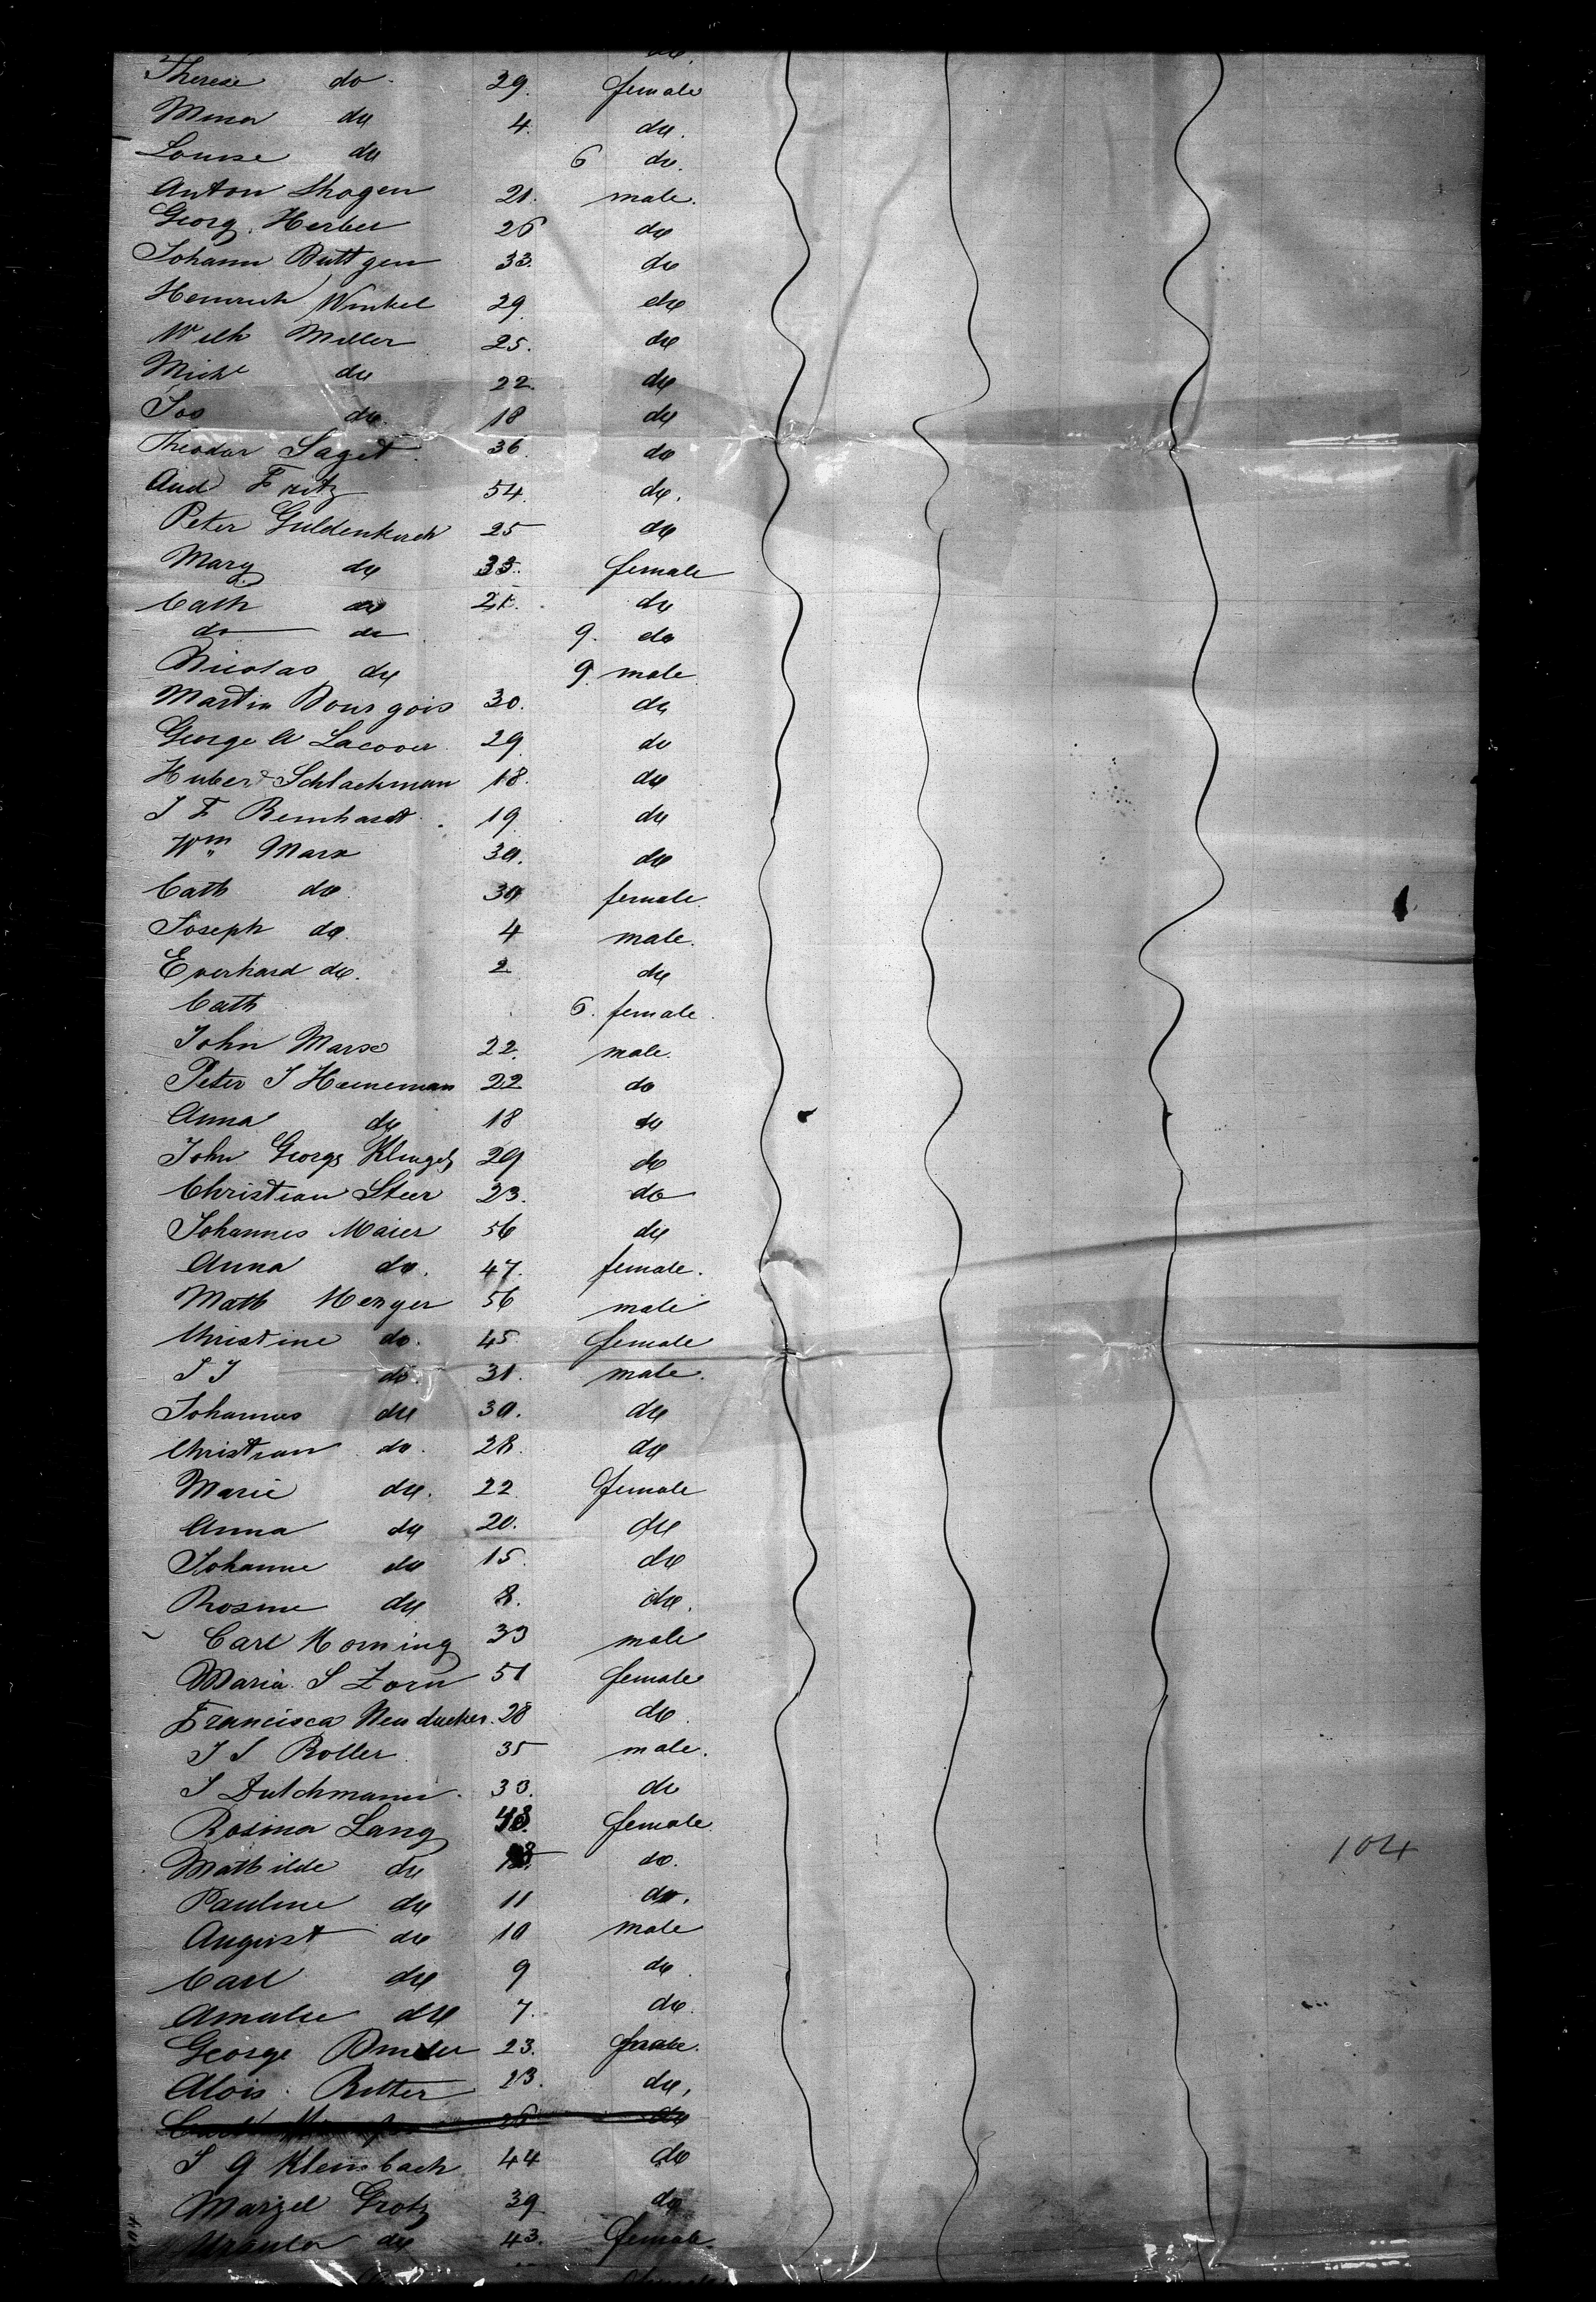 do
Therese do 29. female
Mina do 4. do.
Louise do 6 do.
Anton Shagen 21. male.
Georg Herber 26 do
Johann Buttgen 33. do
Heinrich Winkel 29. do
Wilh Miller 25. do
Mich do 22. do
Jos do. 18 do
Theodor Saget 36. do
And Fritz 54. do.
Peter Guldenkirch 25 do
Mary do 35. female
Cath do 21. do
do do 9. do
Nicolas do 9. male
Martin Bourgois 30. do
George A Lacover 29 do
Hubert Schlachman 18. do
J F Bernhardt. 19 do
Wm Marx 30. do
Cath do 30 female.
Joseph do 4 male.
Everhard do. 2 do
Cath 6. female.
John Marx 22. male.
Peter J Haeneman 22 do
Anna do 18 do
John George 29 do
Christian Steer 23. do
Johannes Maier 56 do
Anna do. 47. female.
Math Menger 56 male
Christine do. 45 female
J J do. 31. male.
Johannes do 30. do
Christian do. 28. do
Marie do. 22. female
Anna do 20. do
Johanne do 15. do
Rosine do 8. do.
Carl Horning 33 male
Maria S Zorn 51 female
Francisca Neuducker. 28 do.
J S Roller 35 male.
J Dutchmann. 33. do
Rosina Lang female.
Mathilde do do.
Pauline do 11 do.
August do 10 male
Carl do 9 do.
Amalie do 7. do.
George 23.
Alois Ritter 23. do,
26 do
J G Kleinbach 44 do
104
Marzel Grotz 39 do
Ursula do 43. female.